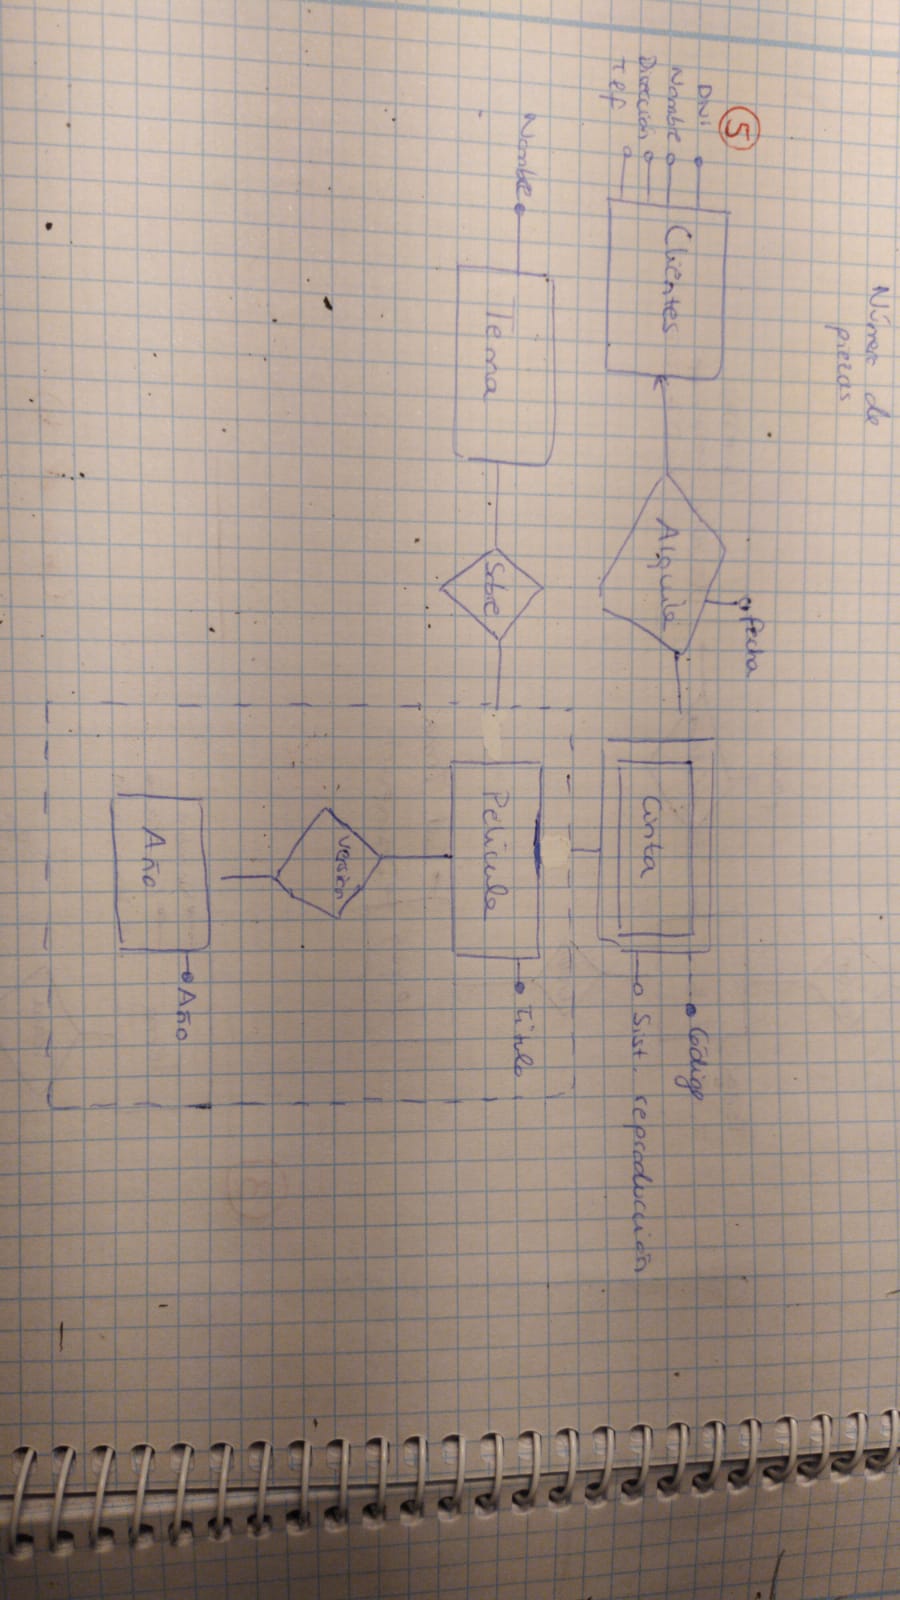 Número de
piezas
5
fecha
DNI
Nombre
Dirección
Tlf
Clientes
Alquila
Cinta
Código
Sist. reproducción
Nombre
Tema
Sobre
Película
Título
Versión
Año
Año